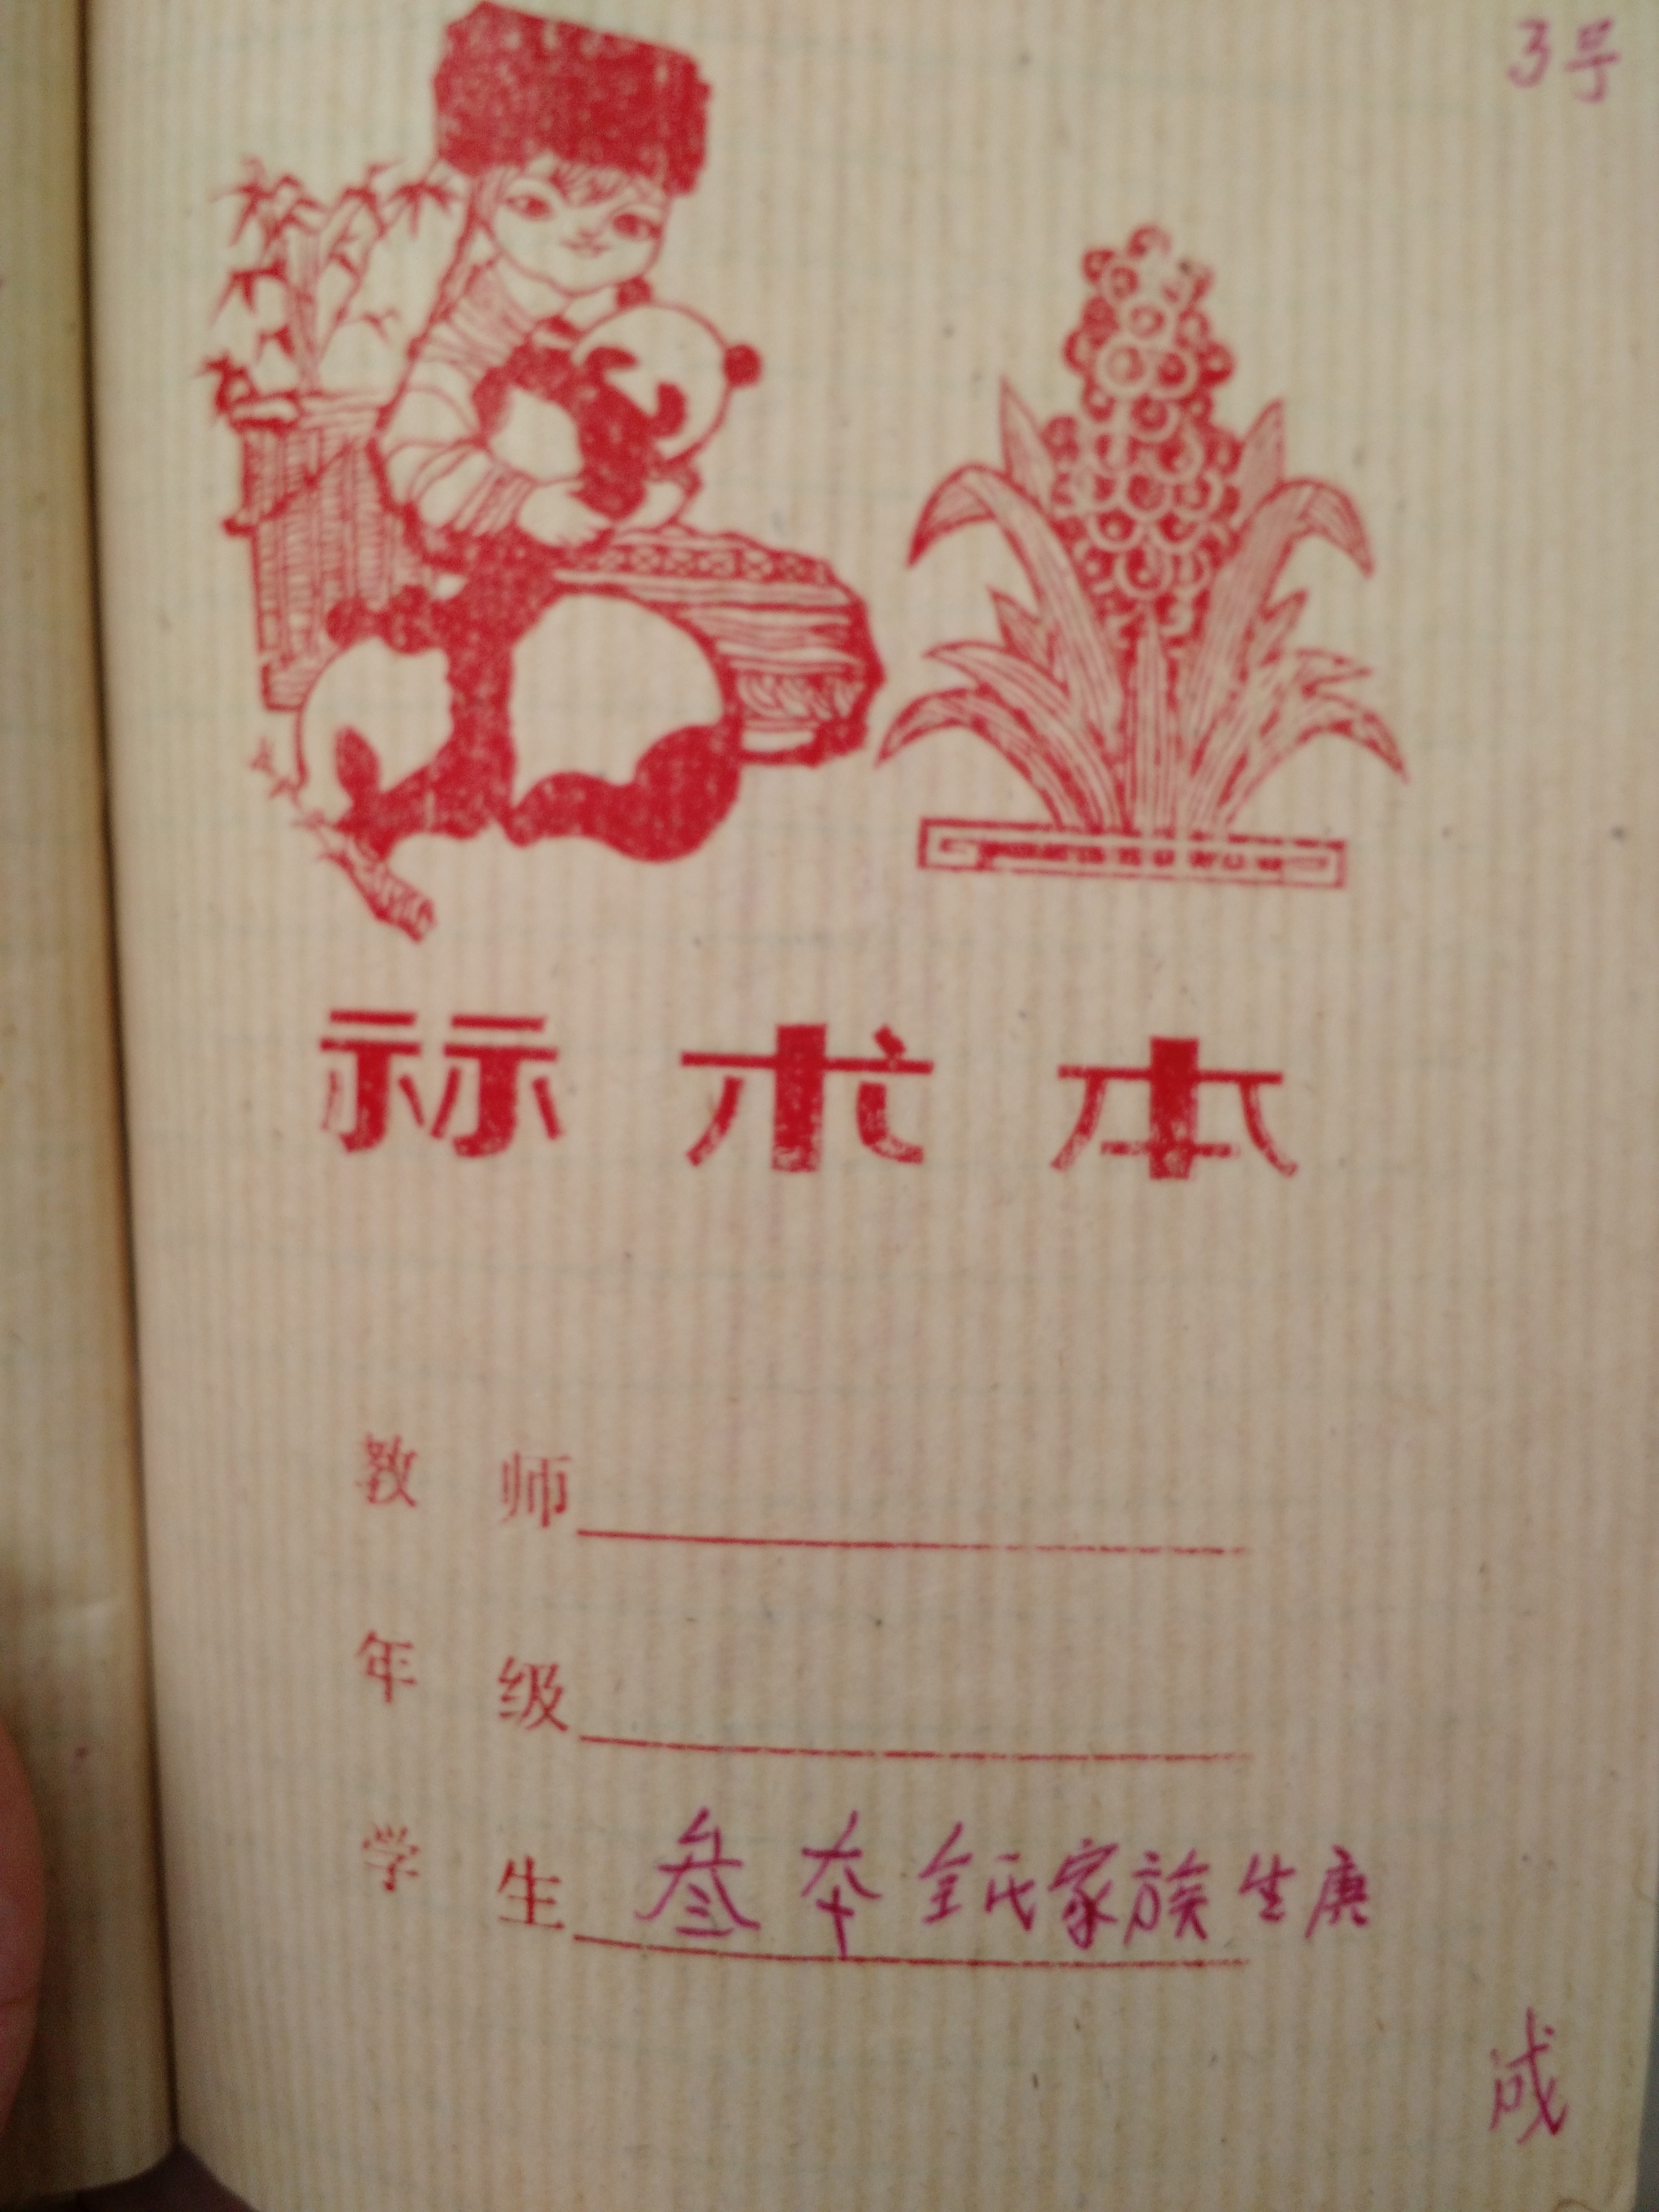 3号
祘术本
教 师
年 级
学 生 叁本全氏家族生庚
成